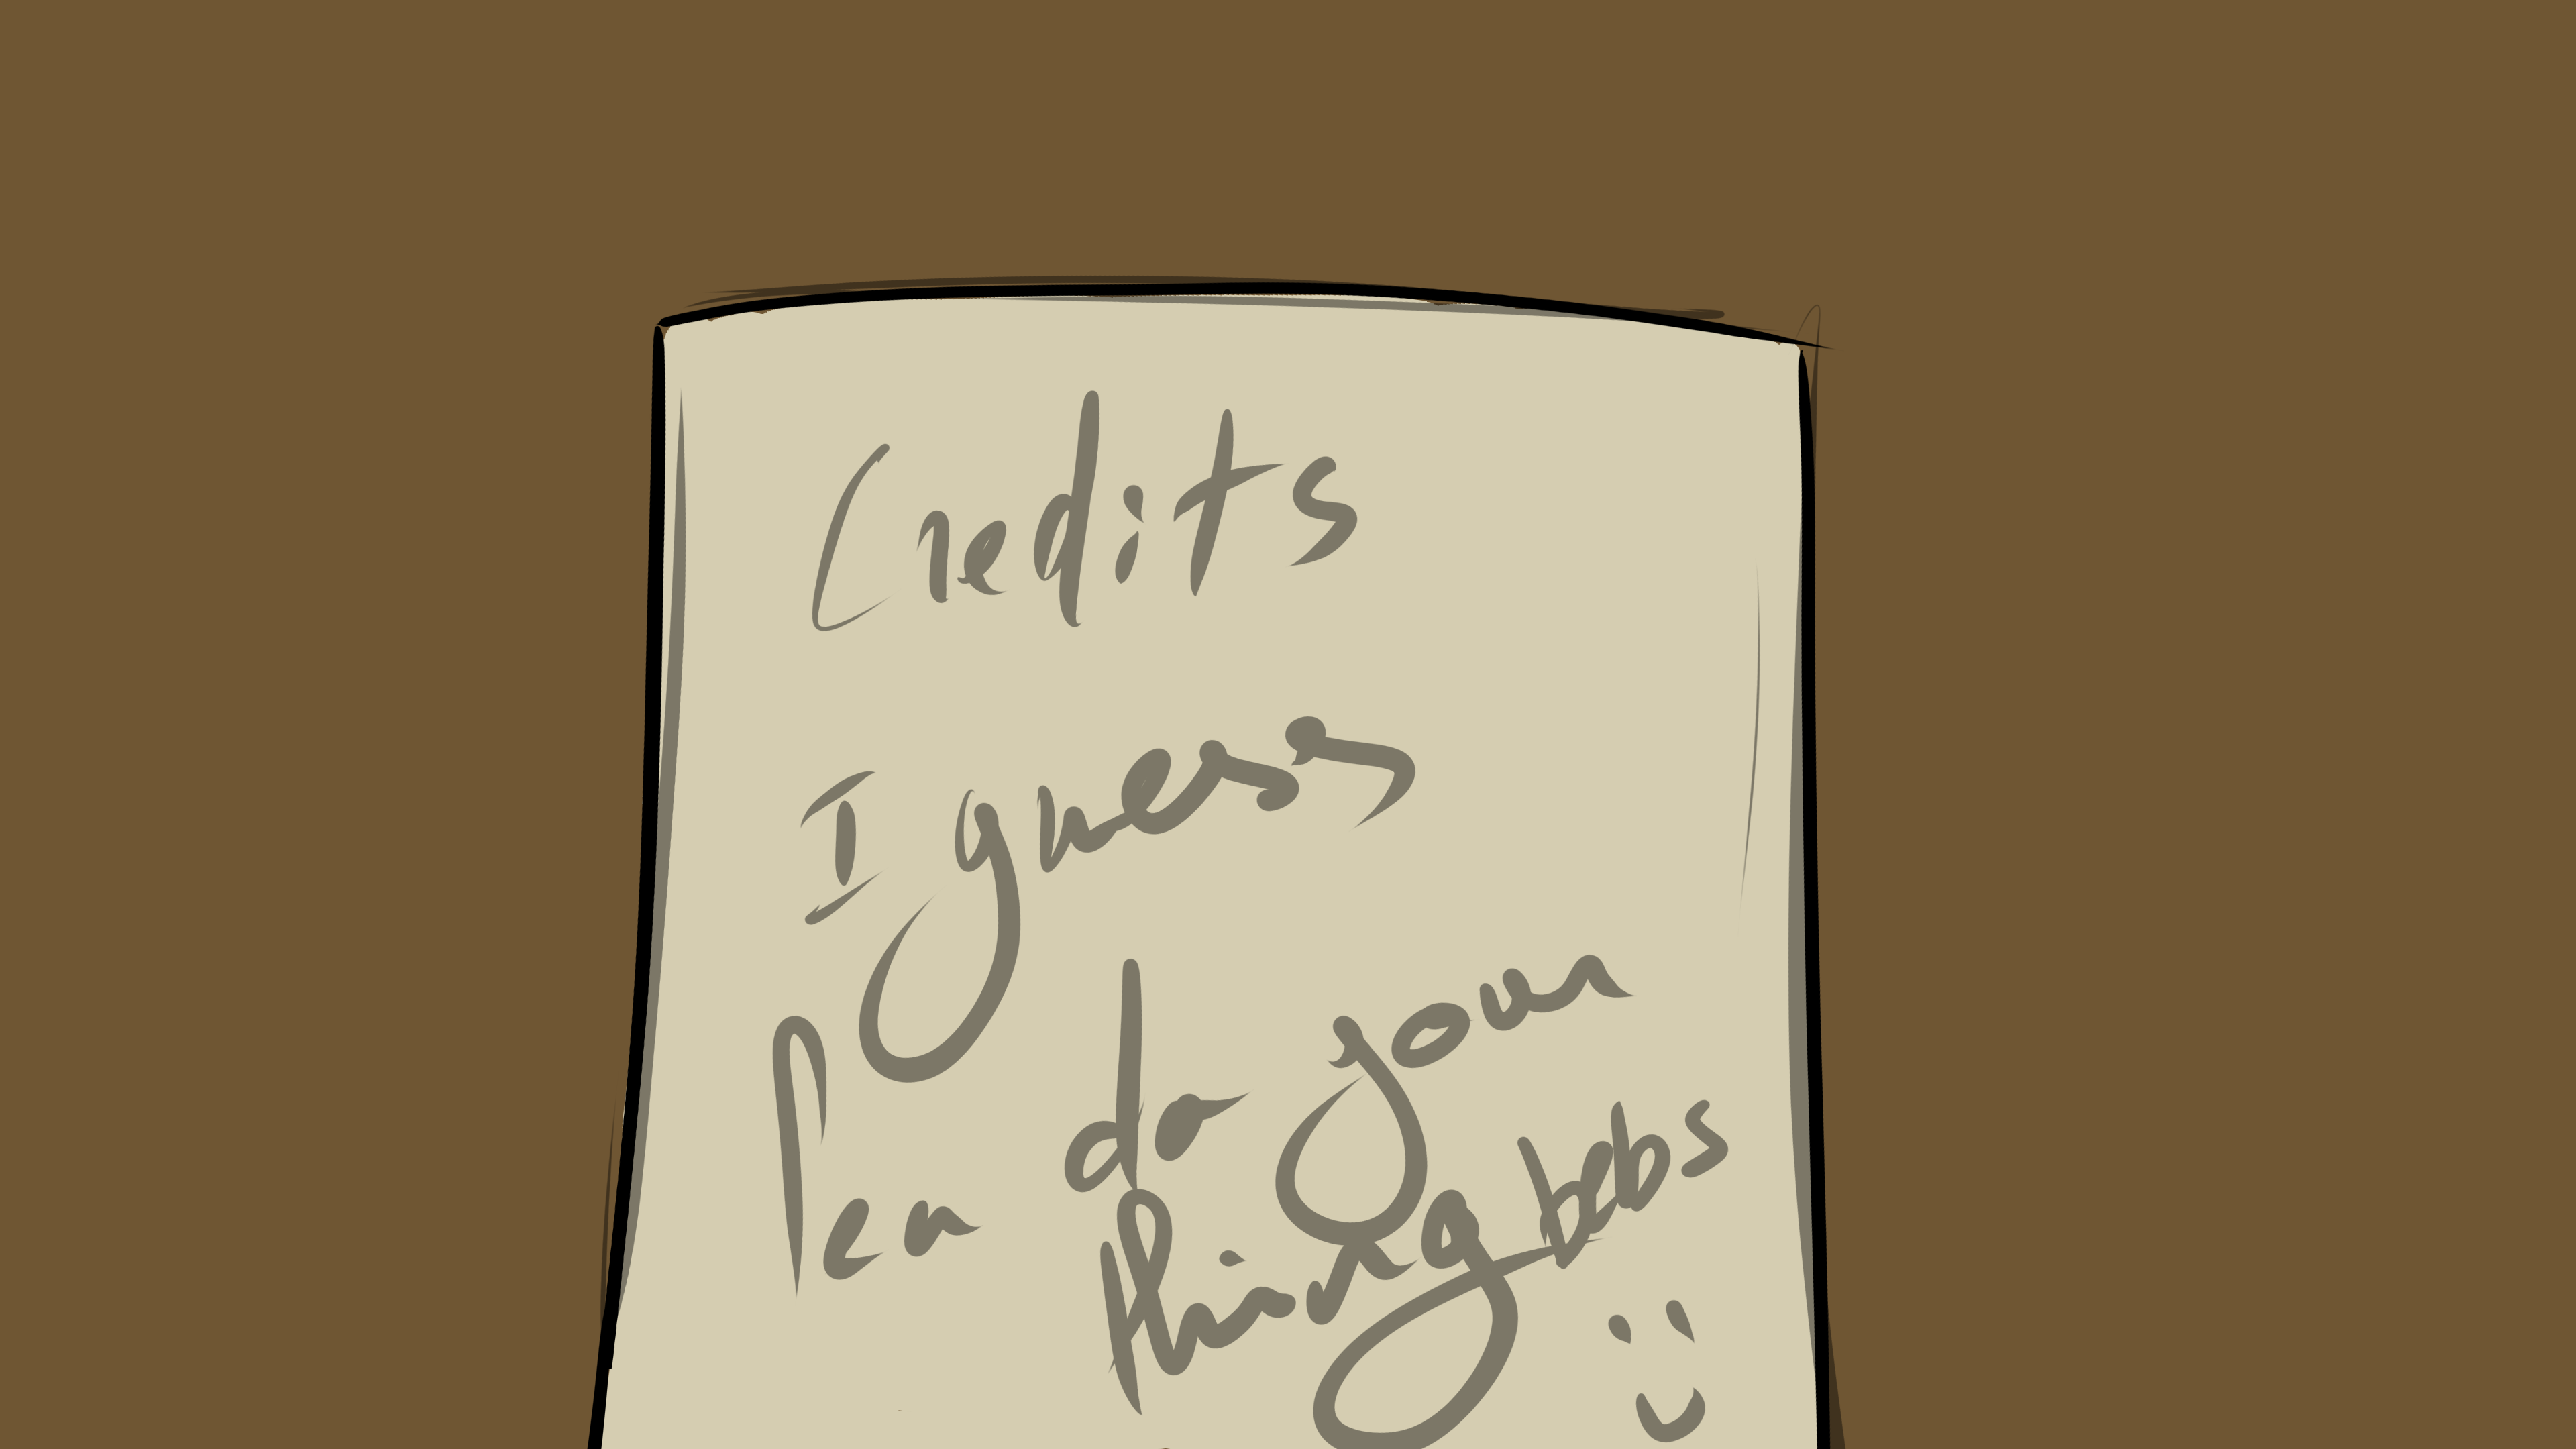 Credits
I guess
Pen do your
thing bebs
:)